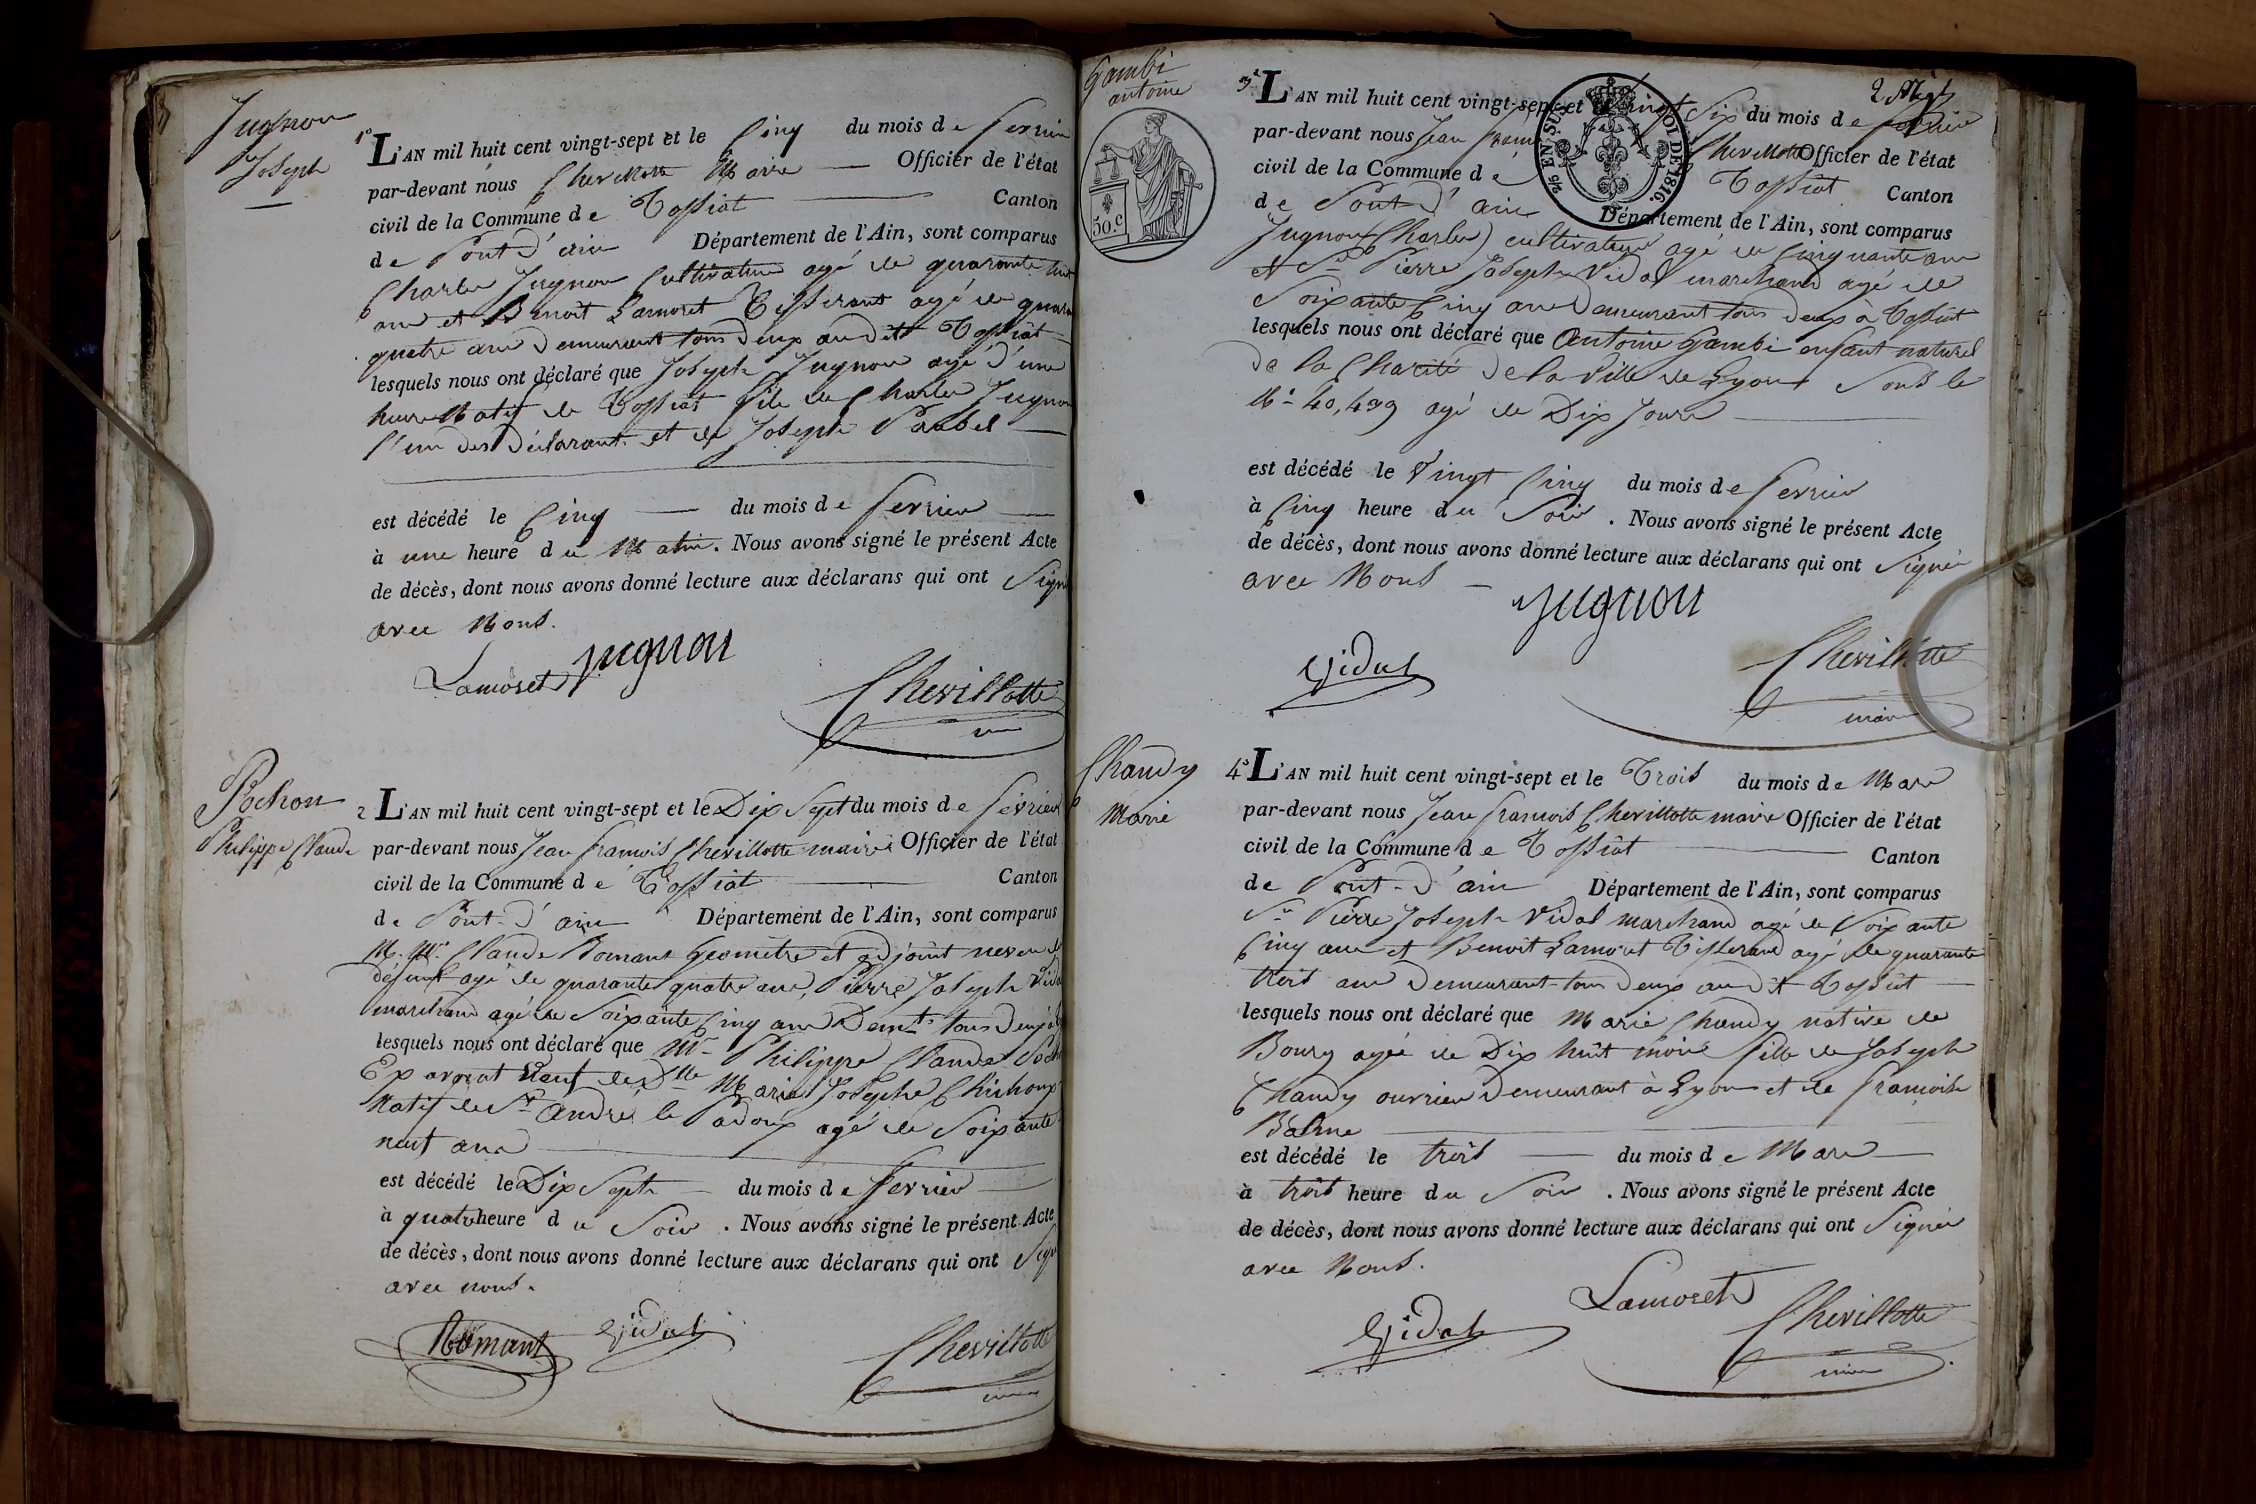 Jugnon
Joseph
1° L'AN mil huit cent vingt-sept et le Cinq du mois de fevrier
par-devant nous Chevillotte Maire Officier de l'état
civil de la Commune de Tossiat Canton
de Pont d'ain Département de l'Ain, sont comparus
Charles Jugnon Cultivateur agé de quarante huit
ans et Benoit Lamoret Tisserant agé de quarante
quatre ans Demeurant tous deux audit Tossiat
lesquels nous ont déclaré que Joseph Jugnon agé d'une
heure Natif de Tossiat fils de Charles Jugnon
l'un des Déclarant et de Joseph
est décédé le Cinq du mois de fevrier
à une heure du Matin. Nous avons signé le présent Acte
de décès, dont nous avons donné lecture aux déclarans qui ont Signé
avec Nous.
Lamoret Jugnon
Chevillotte
Pochon
Philippe Claude
2 L'AN mil huit cent vingt-sept et le Dix Sept du mois de février
par-devant nous Jean francois Chevillotte maire Officier de l'état
civil de la Commune de Tossiat Canton
de Pont-d'ain Département de l'Ain, sont comparus
M. Mr. Claude Romant Geomètre et adjoint neveu du
défunt agé de quarante quatre ans, Pierre Joseph Vidal
marchand agé de Soixante Cinq ans Demt. tous deux à
lesquels nous ont déclaré que Mr Philippe Claude Pochon
Ex avocat Veuf de Dlle Marie Josephe
Natif de St André le Padoux agé de Soixante
neuf ans
est décédé le Dix Sept du mois de fevrier
à quatre heure du Soir. Nous avons signé le présent Acte
de décès, dont nous avons donné lecture aux déclarans qui ont Signé
avec nous.
Romant Vidal
Chevillotte
Gambi
antoine
50.c
2/6 EN SUS LOI DE 1816.
3° L'AN mil huit cent vingt-sept et le Vingt Six du mois de fevrier
par-devant nous Jean francois Chevillotte Officier de l'état
civil de la Commune de Tossiat Canton
de Pont-d'ain Département de l'Ain, sont comparus
Jugnon (Charles) cultivateur agé de Cinquante ans
et Sr Pierre Joseph Vidal marchand agé de
Soixante Cinq ans Demeurant tous deux à Tossiat
lesquels nous ont déclaré que Antoine Gambi enfant naturel
De la Charité De la Ville de Lyon Sous le
N° 40,499 agé de Dix Jours
est décédé le Vingt Cinq du mois de fevrier
à Cinq heure du Soir. Nous avons signé le présent Acte
de décès, dont nous avons donné lecture aux déclarans qui ont Signé
avec Nous
Jugnon
Vidal
Chevillotte
maire
Chandy
Marie
4° L'AN mil huit cent vingt-sept et le Trois du mois de Mars
par-devant nous Jean francois Chevillotte maire Officier de l'état
civil de la Commune de Tossiat Canton
de Pont-d'ain Département de l'Ain, sont comparus
Sr Pierre Joseph Vidal marchand agé de Soixante
Cinq ans et Benoit Lamoret Tisserand agé de quarante
trois ans Demeurant tous deux audit Tossiat
lesquels nous ont déclaré que Marie Chandy native de
Bourg agée de Dix huit mois fille de Joseph
Chandy ouvrier Demeurant à Lyon et de francoise
Balme
est décédé le trois du mois de Mars
à trois heure du Soir. Nous avons signé le présent Acte
de décès, dont nous avons donné lecture aux déclarans qui ont Signé
avec Nous.
Lamoret
Vidal
Chevillotte
maire